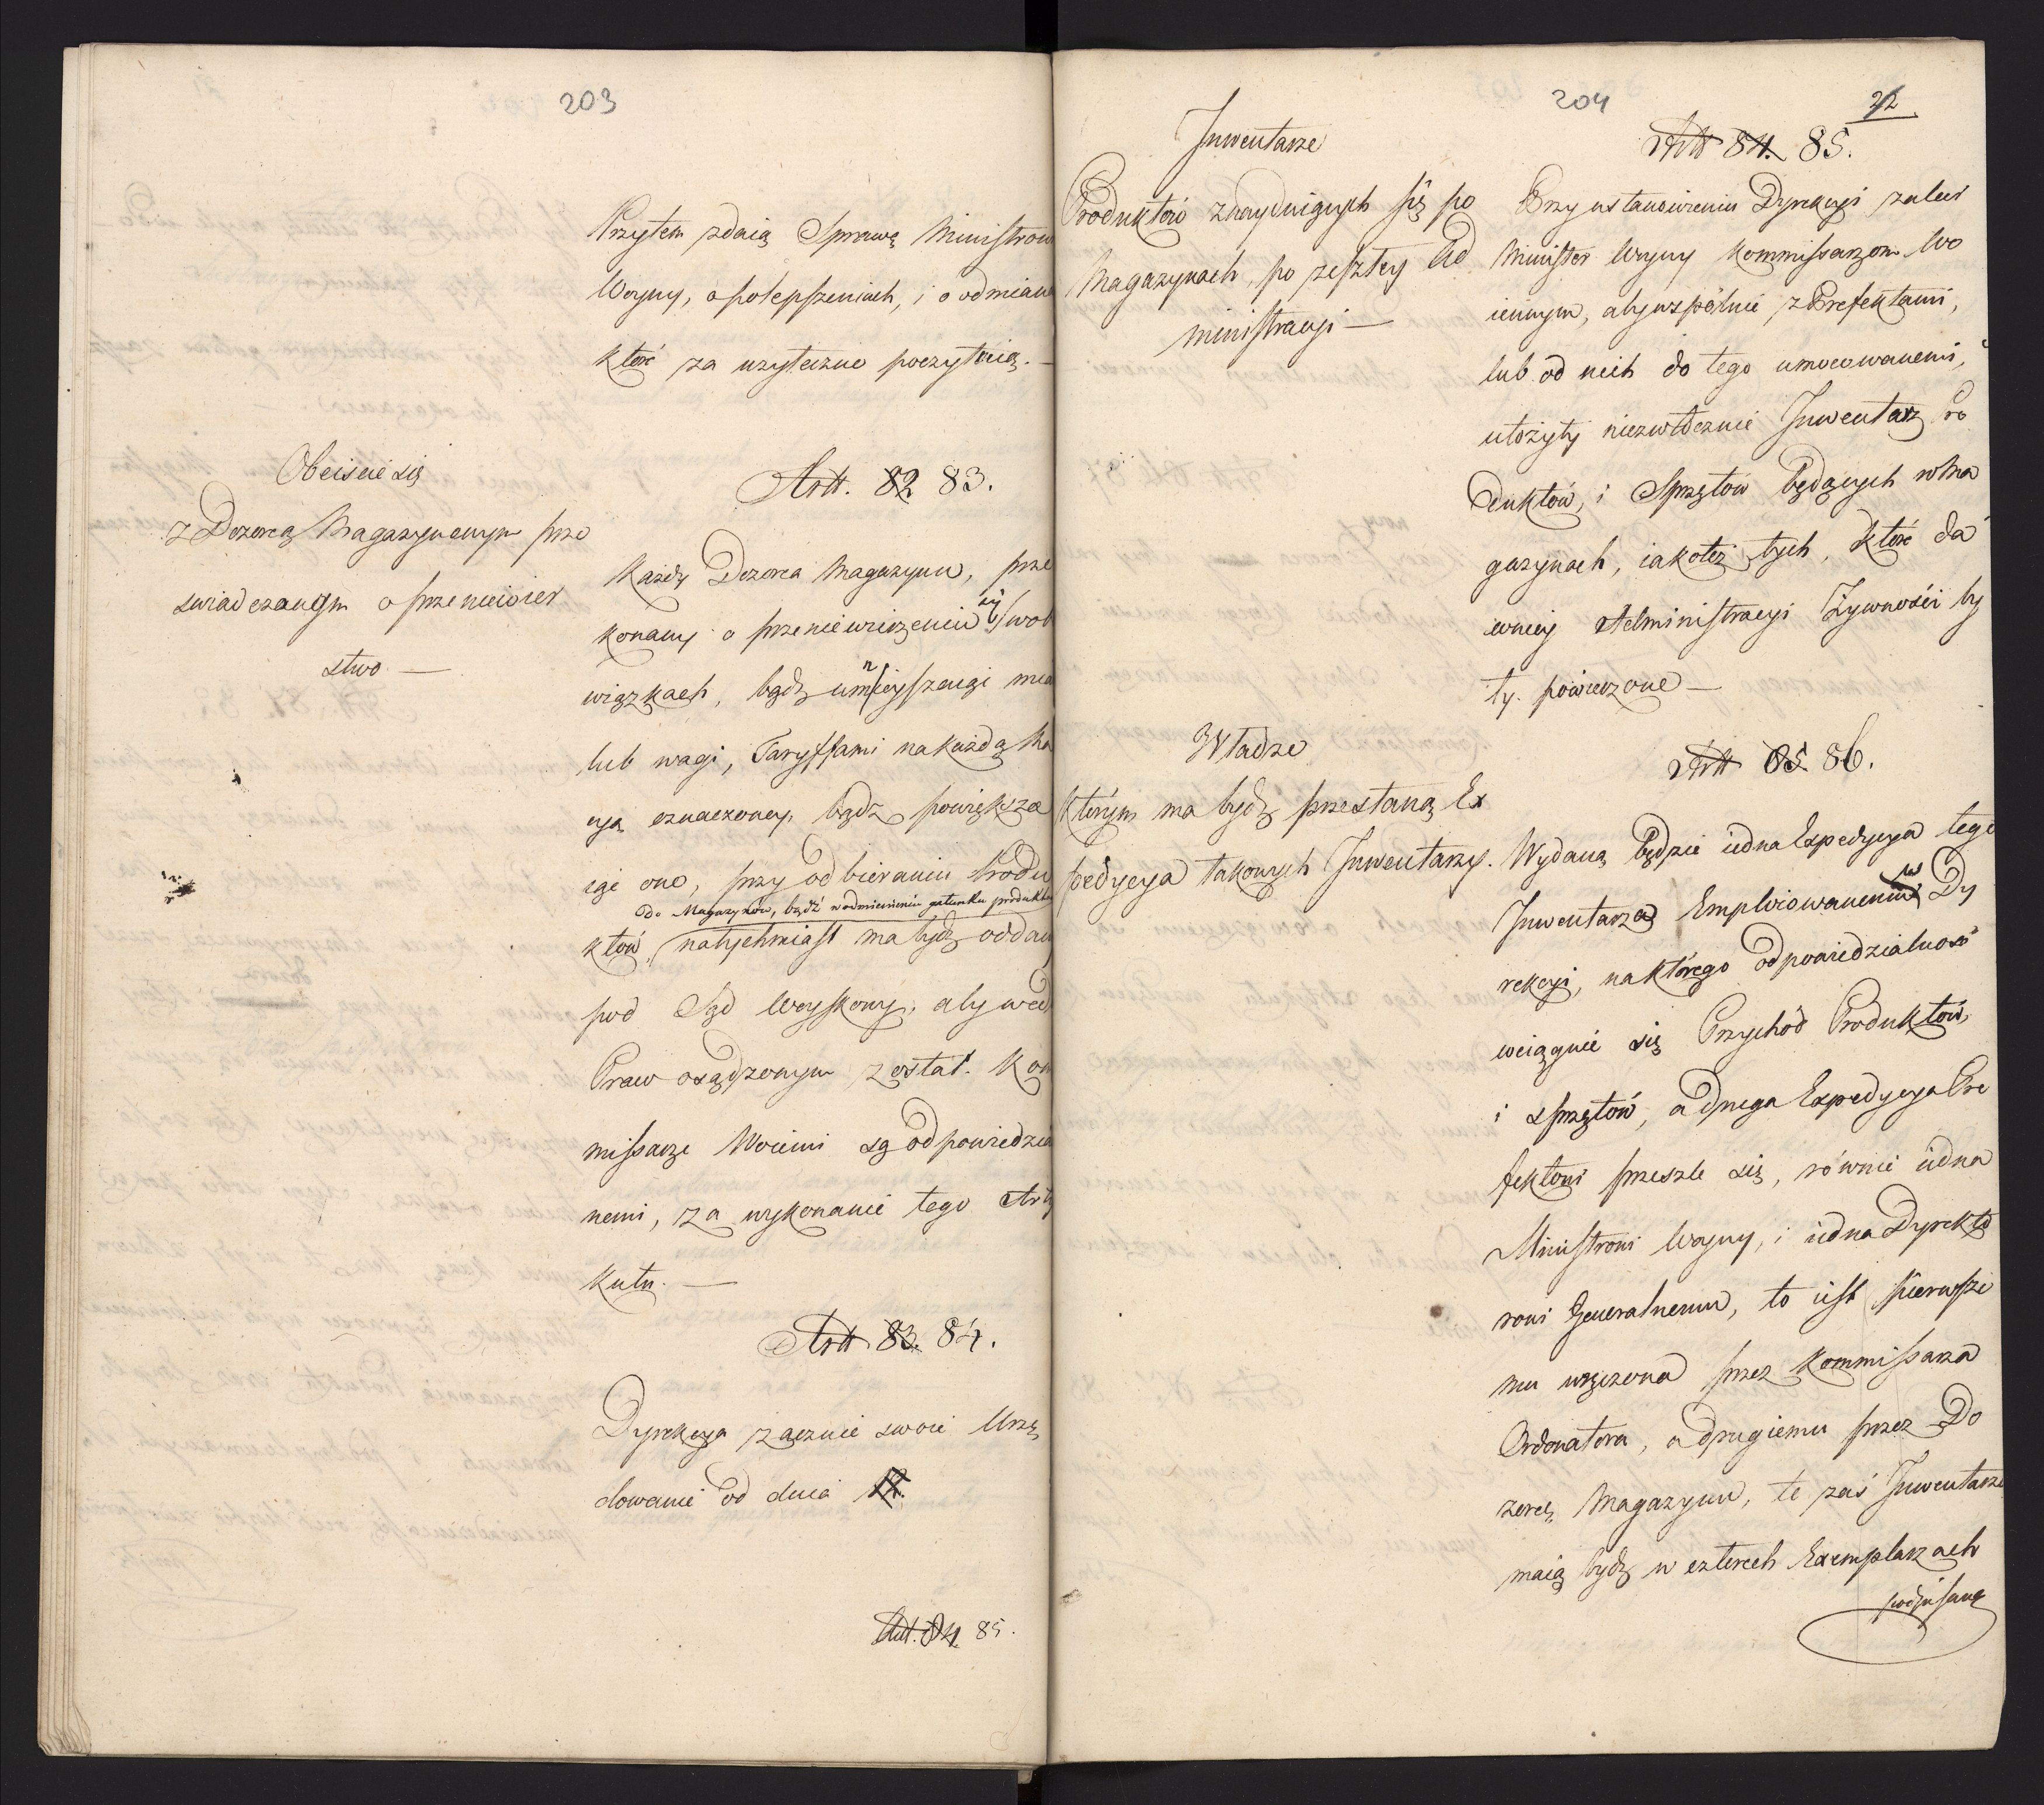 203
Przytem zdaią Sprawę Ministrow
Woyny, o polepszeniach, i o odmiana
które za użyteczne poczytaią. —
Obeiście się
z Dozorcą Magazynowym prze
świadczonym o przeniewier
stwo —
Artt. 82 83.
Każdy Dozorca Magazynu, prze
konany o przeniewierzeniu się w ob
wiązkach, bądź umnieyszaiąc mia
lub wagi, Taryffami na każdą Ra
cyą oznaczoney, bądź powiększa
iąc one, przy odbieraniu Produ
do Magazynów, bądź w odmienieniu gatunku produktu
któw, natychmiast ma bydź oddan
pod Sąd Woyskowy, aby wed
Praw osądzonym został. Kom
missarze Woienni są odpowiedzia
nemi, za wykonanie tego Arty
kułu. —
Artt 83. 84.
Dyrekcya zacznie swoie Urzę
dowanie od dnia
Artt. 84 85.
204
22
Inwentarze
Produktów znayduiących się po
Magazynach, po zeszłey Ad
ministracyi —
Artt 84. 85.
Przy ustanowieniu Dyrekcyi zaleci
Minister Woyny Kommissarzom Wo
iennym, aby wspólnie z Prefektami,
lub od nich do tego umocowanemi,
ułożyły niezwłocznie Inwentarz Pro
duktów, i Sprzętów będących w Ma
gazynach, iakoteż tych, które da
wniey Administracyi Żywności by
ły powierzone —
Władze
którym ma bydź przesłaną Ex
pedycya takowych Inwentarzy.
Artt 85. 86.
Wydaną będzie iedna Expedycya tego
Inwentarza Emploiowanemu w Dy
rekcyi, na którego odpowiedzialność
wciągnie się Przychód Produktów,
i sprzętów, a druga Expedycya Pre
fektowi prześle się, równie iedna
Ministrowi Woyny, i iedna Dyrekto
rowi Generalnemu, to iest pierwsze
mu wręczona przez Kommissarza
Ordonatora, a drugiemu przez Do
zorcę Magazynu, te zaś Inwentarze
maią bydź w czterech Exemplarzach
podpisane